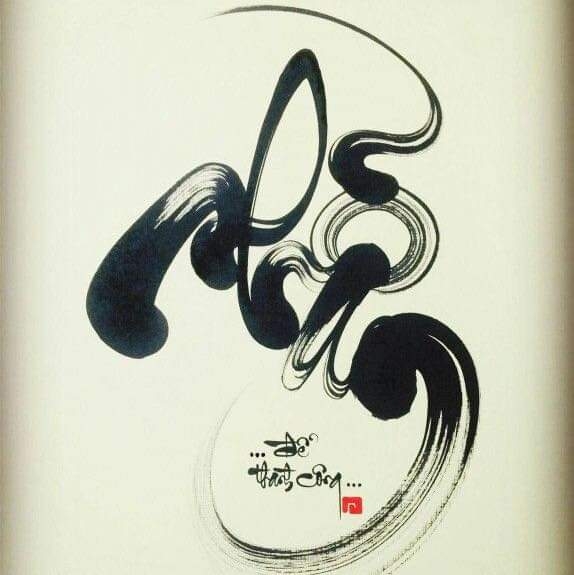 Nhẫn
... để
thành công ...